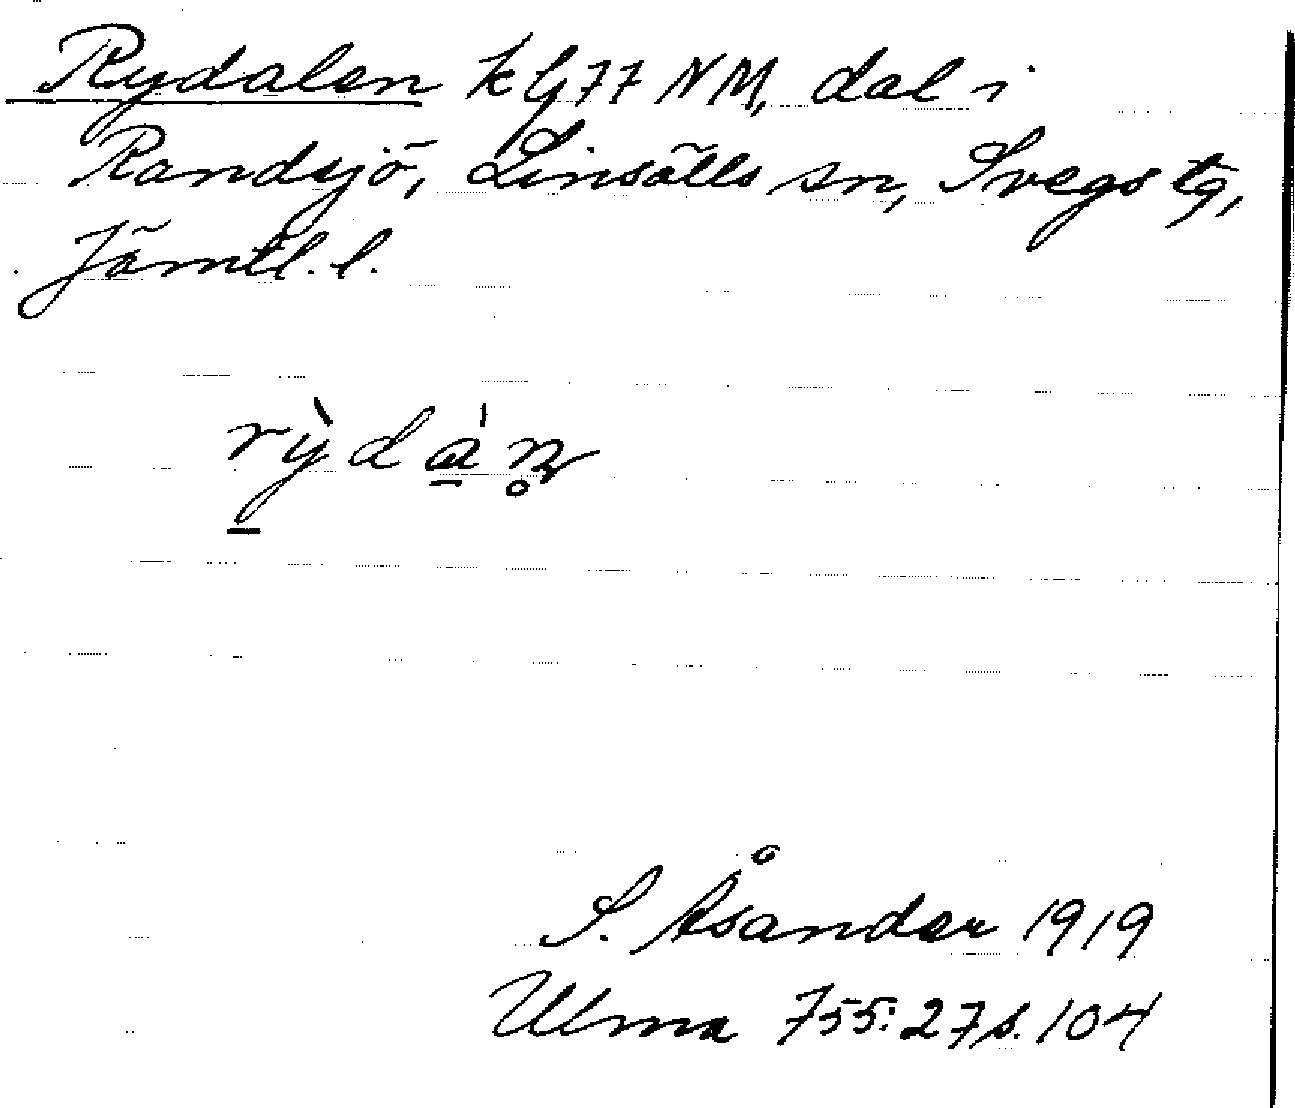 Rydalen kbl 77 NM, dal i
Randsjö, Linsälls sn, Svegs tg,
Jämtl. l.
rỳdán̥
S. Åsander 1919
Ulma 755:27 s. 104